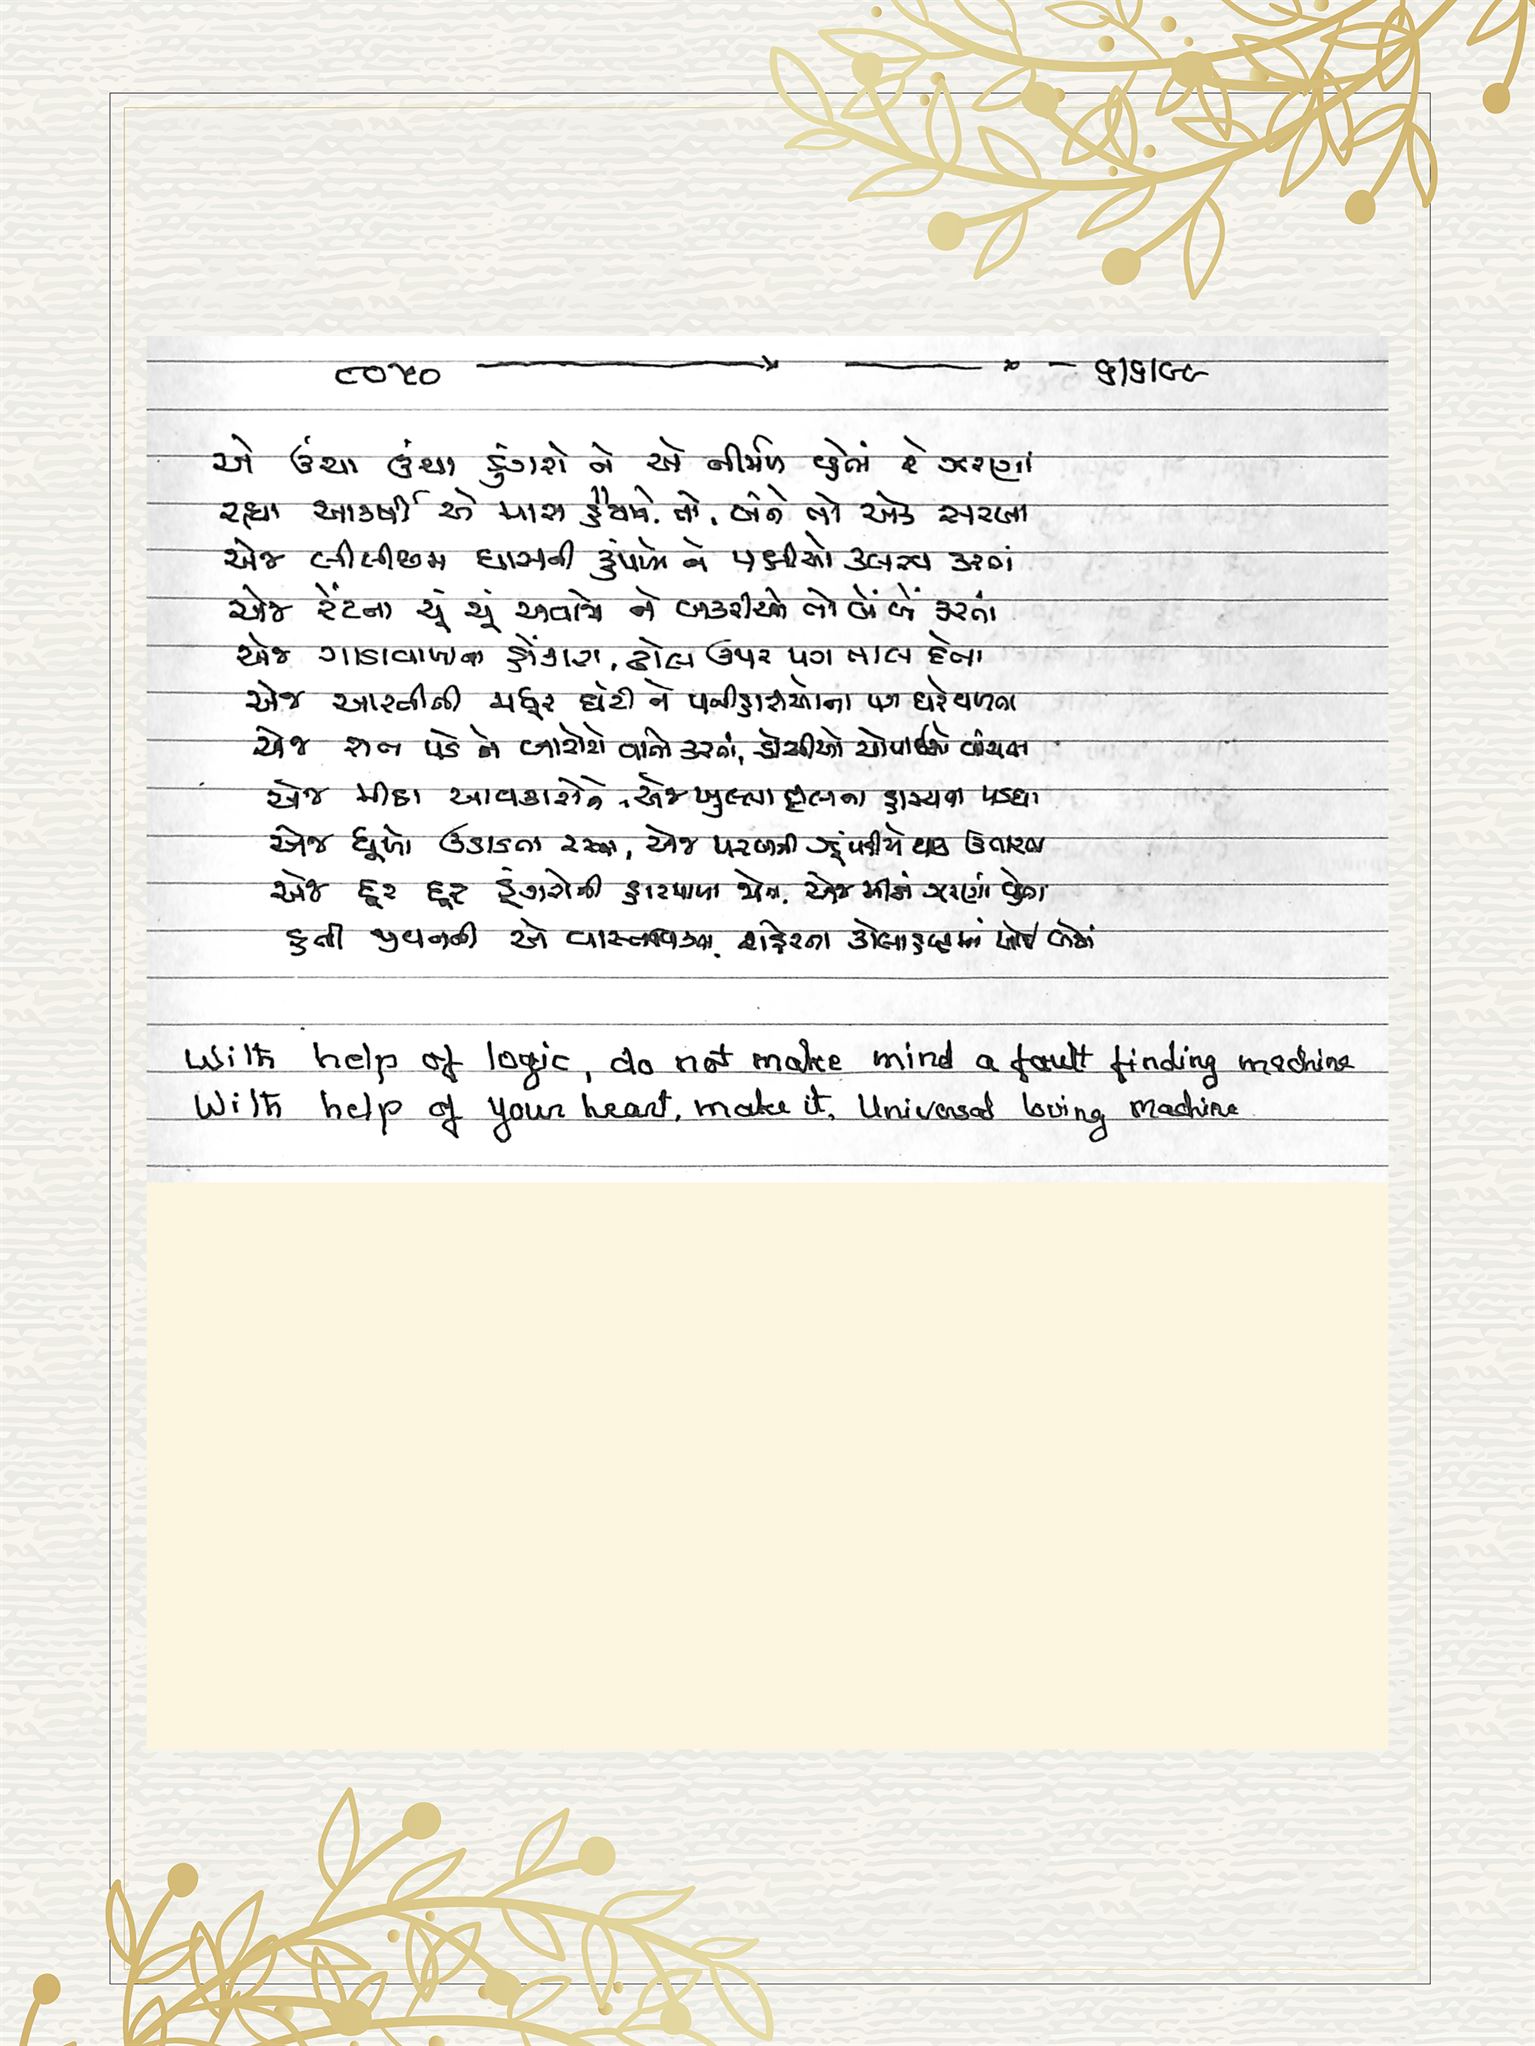 ૯૦૫૦ ૬/૬/૯૮
એ ઉંચા ઉંચા ડુંગરો ને એ નીર્મળ વ્હેતાં રે ઝરણાં
રહ્યા આકર્ષી એ પાસ તો, બંને તો એક સરખા
એજ લીલીછમ ઘાસની કુંપળો ને પક્ષીઓ કલરવ કરતાં
એજ રેંટના ચૂં ચૂં અવાજો ને બકરીઓ તો બેં બેં કરતાં
એજ ગાડાવાળાના હોંકારા, ઢોલ ઉપર પગ તાલ દેતા
એજ આરતીની મધુર ઘંટી ને પનીહારીઓના પગ ઘરે વળતા
એજ રાત પડે ને વાતો કરતાં, ડોસીઓ ચોપાઈઓ વાંચતા
એજ મીઠા આવકારોને, એજ ખુલ્લા દીલના હાસ્યના પડઘા
એજ ધૂળો ઉડાડતા રસ્તા, એજ પરબની ઝૂંપડીયે થાક ઉતારતા
એજ દૂર દૂર ડુંગરોની હારમાળા એજ મીઠાં ઝરણાં વ્હેતા
હતી જીવનની એ વાસ્તવિકતા, શહેરના કોલાહલમાં ખોઈ બેઠાં
With help of logic, do not make mind a fault finding machine
With help of your heart, make it, Universal loving machine